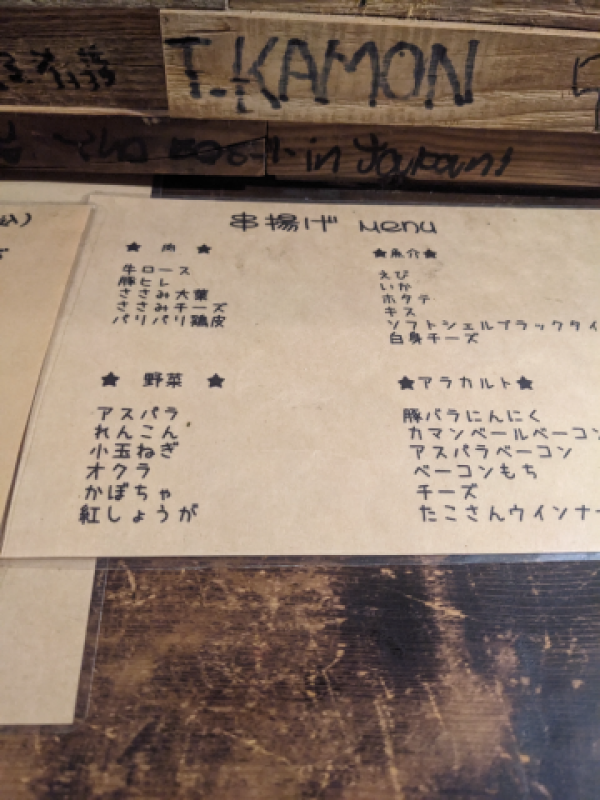 T.KAMON
in Japan!
串揚げ Menu
★ 肉 ★
牛ロース
豚ヒレ
ささみ大葉
ささみチーズ
パリパリ鶏皮
★魚介★
えび
いか
ホタテ
キス
ソフトシェルブラックタイ
白身チーズ
★ 野菜 ★
アスパラ
れんこん
小玉ねぎ
オクラ
かぼちゃ
紅しょうが
★アラカルト★
豚バラにんにく
カマンベールベーコン
アスパラベーコン
ベーコンもち
チーズ
たこさんウインナー